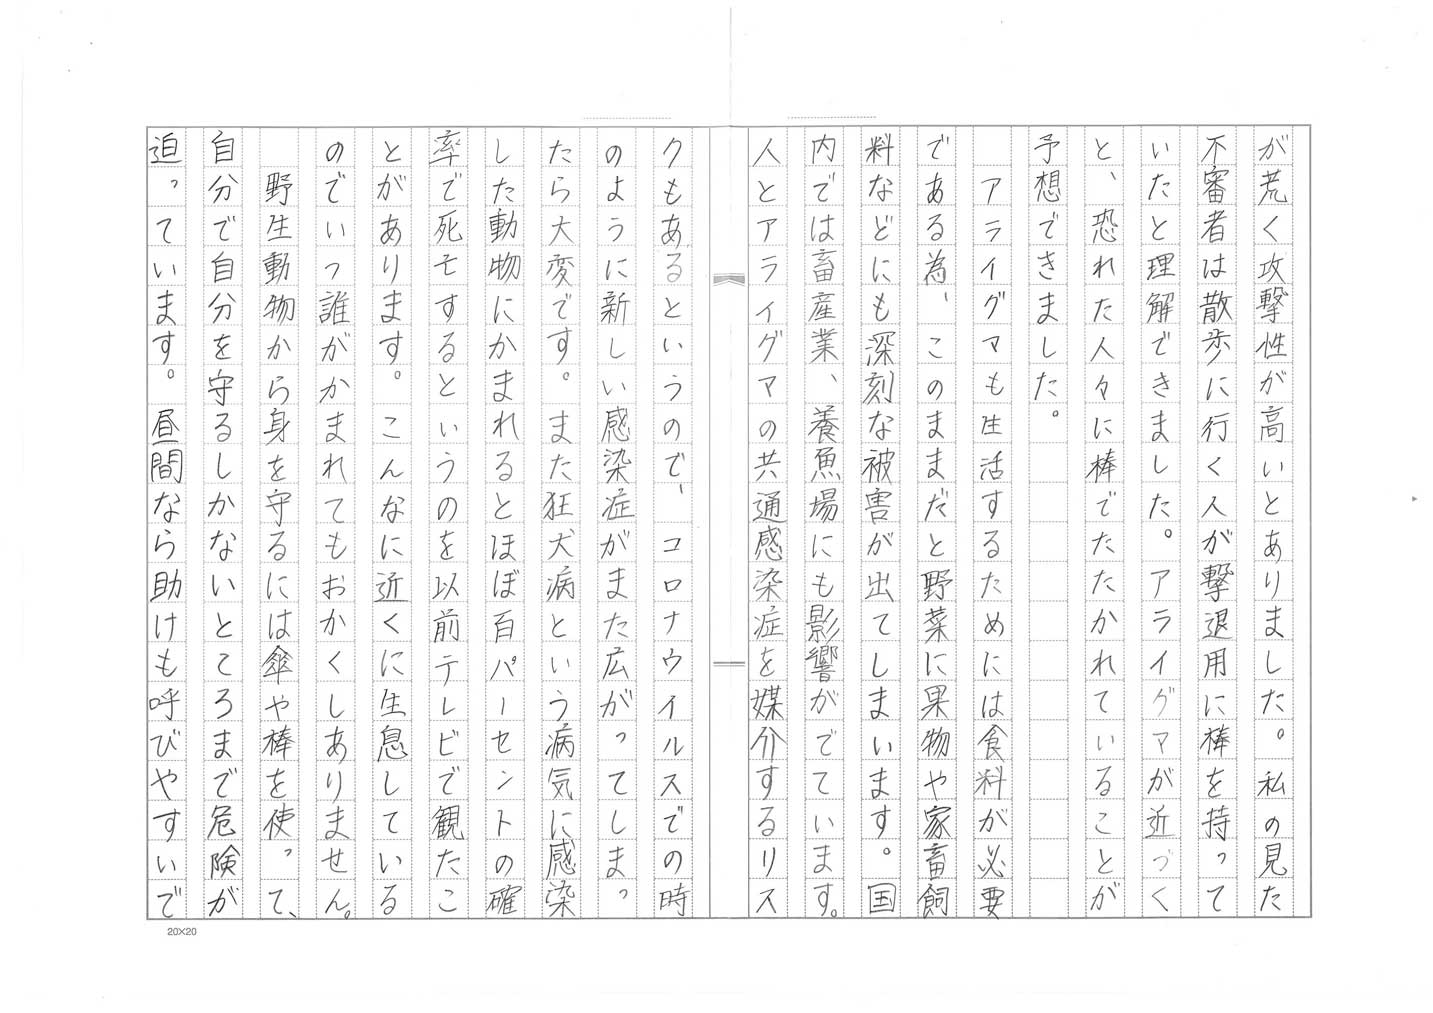 が荒く攻撃性が高いとありました。私の見た
不審者は散歩に行く人が撃退用に棒を持って
いたと理解できました。アライグマが近づく
と、恐れた人々に棒でたたかれていることが
予想できました。
アライグマも生活するためには食料が必要
である為、このままだと野菜に果物や家畜飼
料などにも深刻な被害が出てしまいます。国
内では畜産業、養魚場にも影響がでています。
人とアライグマの共通感染症を媒介するリス
クもあるというので、コロナウイルスでの時
のように新しい感染症がまた広がってしまっ
たら大変です。また狂犬病という病気に感染
した動物にかまれるとほぼ百パーセントの確
率で死亡するというのを以前テレビで観たこ
とがあります。こんなに近くに生息している
のでいつ誰がかまれてもおかくしありません。
野生動物から身を守るには傘や棒を使って、
自分で自分を守るしかないところまで危険が
迫っています。昼間なら助けも呼びやすいで
20×20